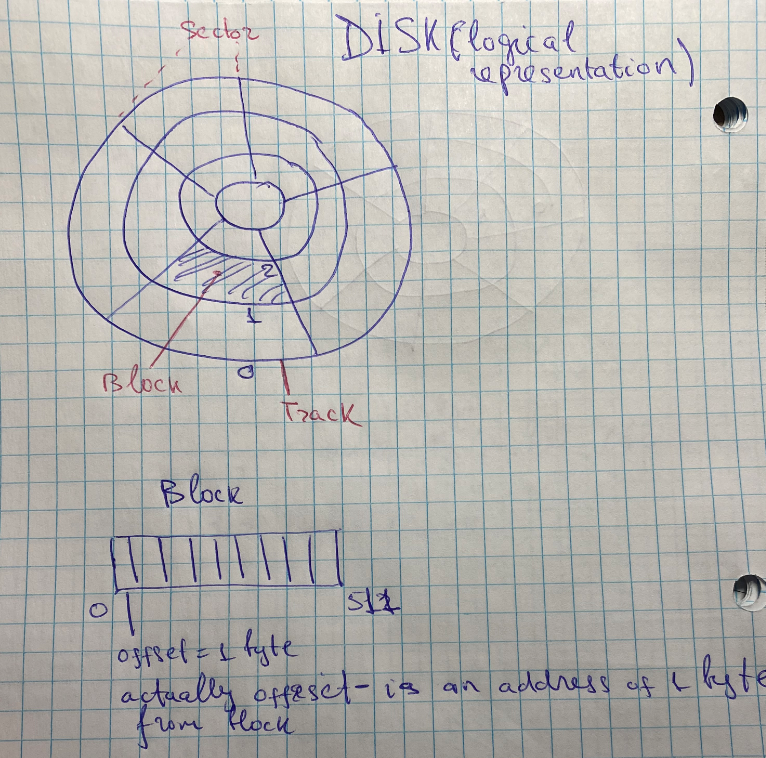 Sector
DISK (logical
representation)
2
1
0
Block
Track
Block
0
511
offset = 1 byte
actually offset - is an address of 1 byte
from block